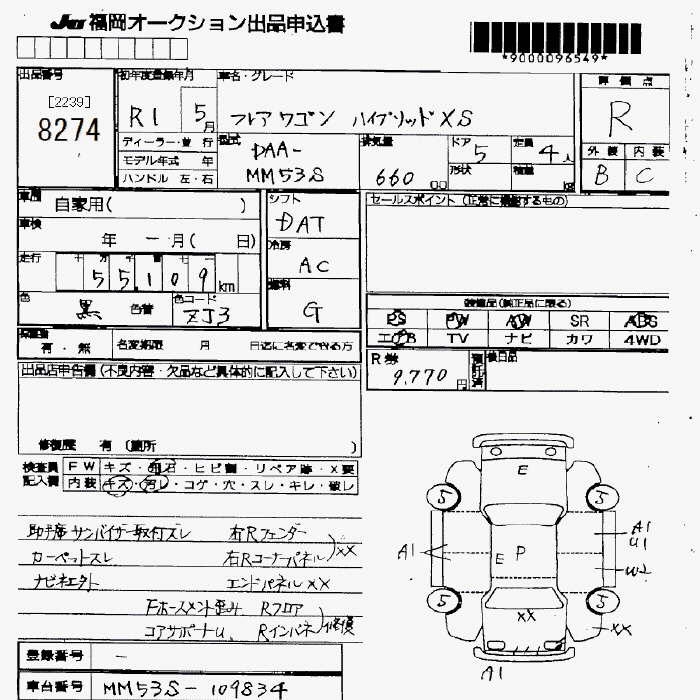 JU 福岡オークション出品申込書
*9000096549*
出品番号 初年度登録年月 車名・グレード 評価点
[2239]
8274
R1 5月 フレアワゴン ハイブリッドXS R
ディーラー・並行 型式 排気量 ドア 定員 外装 内装
モデル年式 年 DAA- 5 4人 B C
ハンドル 左・右 MM53S 660 cc 形状 積量 kg
車歴 自家用( ) シフト セールスポイント (正常に機能するもの)
DAT
車検 年 - 月( 日) 冷房
AC
走行 55,109km 燃料
色 黒 色替 色コード ZJ3 G
装備品(純正品に限る)
PS PW AW SR ABS
エアB TV ナビ カワ 4WD
保証書 有・無 名変期限 月 日迄に名変できる方
R券 9,770円 預託済 後日品
出品店申告欄(不良内容・欠品など具体的に記入して下さい)
修復歴 有 (箇所 )
検査員 FW キズ・飛石・ヒビ割・リペア跡・X要
記入欄 内装 キズ・汚レ・コゲ・穴・スレ・キレ・破レ
助手席サンバイザー取付ズレ 右Rフェンダー
カーペットスレ 右Rコーナーパネル)XX
ナビネエクト エンドパネルXX
Fホースメント歪み Rフロア
コアサポートU, Rインパネ)修復
登録番号 -
車台番号 MM53S-109834
E
5 5
A1 E P A1 U1
W2
5 5
XX XX
A1